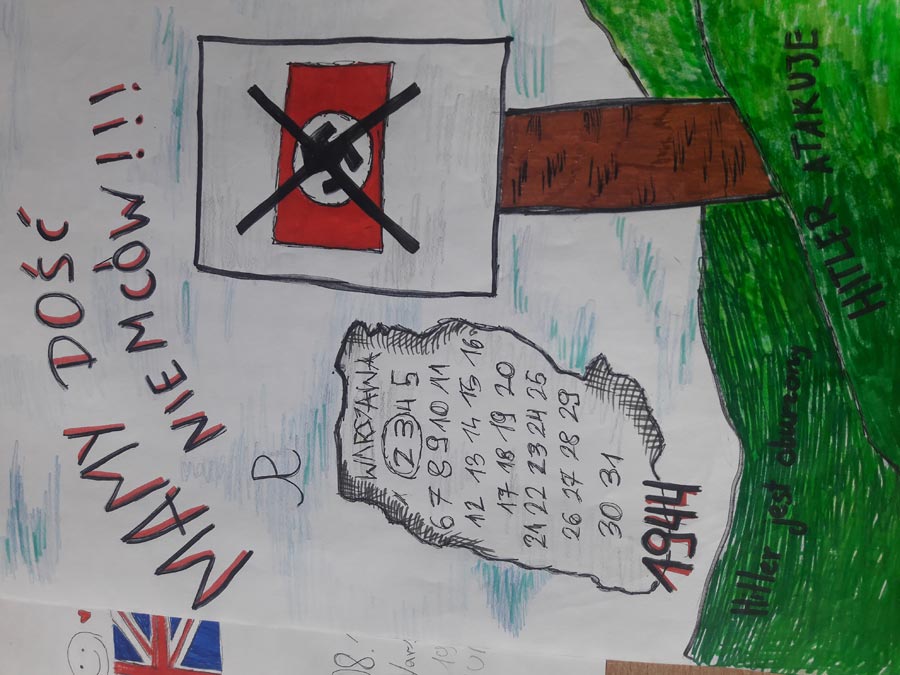 MAMY DOŚĆ
NIEMCÓW!!!
WARSZAWA
2 3 4 5
6 7 8 9 10 11
12 13 14 15 16
17 18 19 20
21 22 23 24 25
26 27 28 29
30 31
1944
Hitler jest oburzony
HITLER ATAKUJE